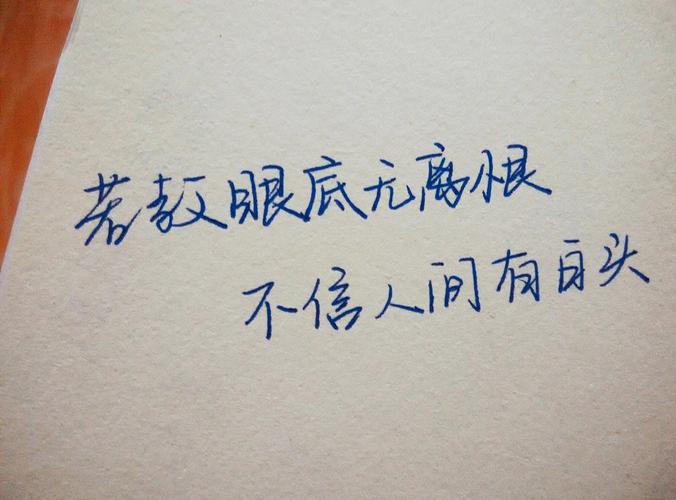 若教眼底无离恨
不信人间有白头